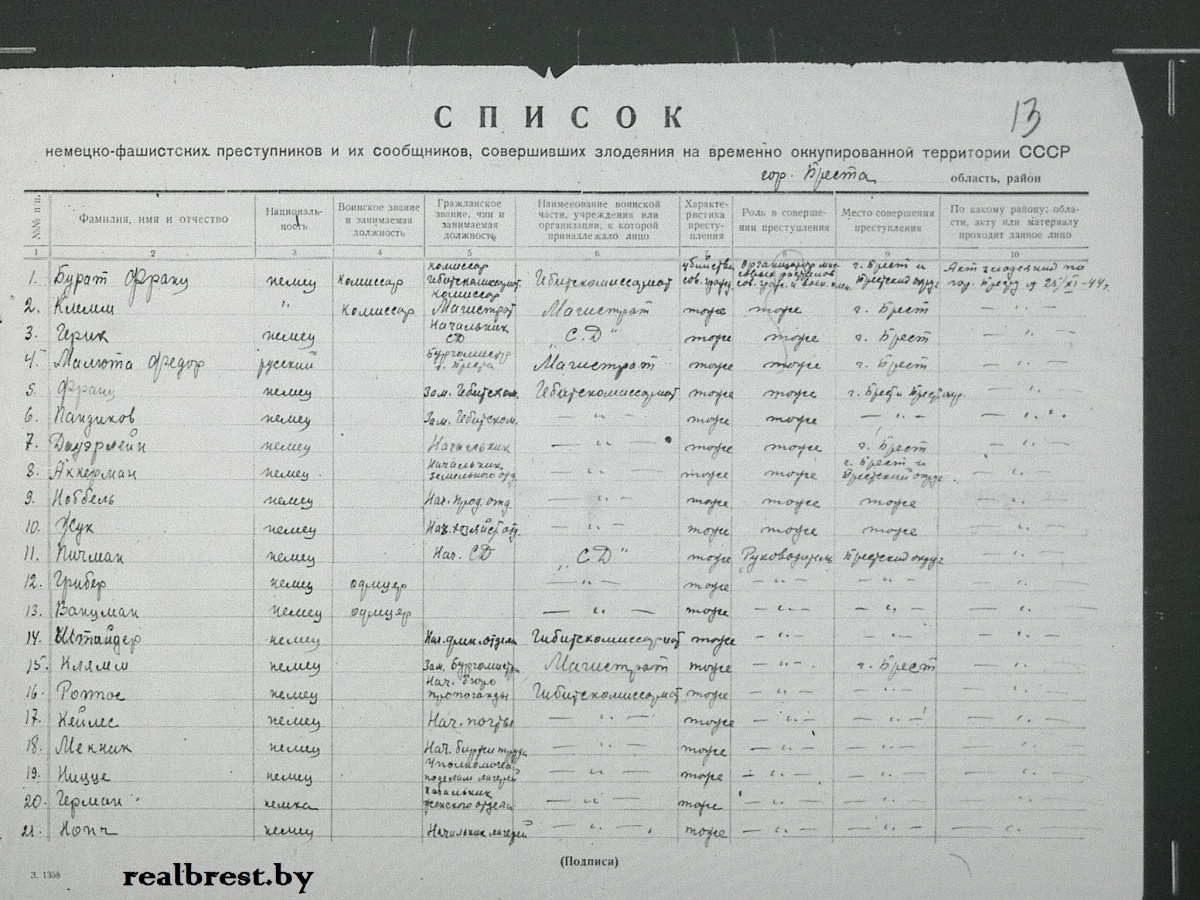 13
СПИСОК
немецко-фашистских преступников и их сообщников, совершивших злодеяния на временно оккупированной территории СССР
гор. Бреста область, район
№№ п.п. Фамилия, имя и отчество Националь-ность Воинское звание и занимаемая должность Гражданское звание, чин и занимаемая должность Наименование воинской части, учреждения или организации, к которой принадлежало лицо Характе-ристика преступ-ления Роль в соверше-нии преступления Место совершения преступления По какому району; обла-сти, акту или материалу проходит данное лицо
1 2 3 4 5 6 7 8 9 10
1. Бурат Франц немец комиссар комиссар Гебитскомиссариат г. Брест и Брестский округ Акт злодеяний по гор. Бресту
2. Клемм " комиссар комиссар Магистрат Магистрат тоже тоже г. Брест — " —
3. Герик немец Начальник СД „СД" тоже тоже г. Брест — " —
4. Малюта Федор русский Бургомистр г. Бреста Магистрат тоже тоже г. Брест — " —
5. Франц немец Зам. Гебитском. Гебитскомиссариат тоже тоже — " —
6. Панзиков немец Зам. Гебитском. — " — тоже тоже — " — — " —
7. Дауэрлейн немец Начальник — " — тоже тоже г. Брест — " —
8. Аккерман немец Начальник земельного отд. — " — тоже тоже г. Брест и Брестский округ — " —
9. Ноббель немец Нач. Прод. отд. — " — тоже тоже тоже — " —
10. Усук немец — " — тоже тоже тоже — " —
11. Пичман немец Нач. СД „СД" тоже Руководитель Брестский округ — " —
12. Грибер немец офицер — " — тоже — " — — " — — " —
13. Ванцман немец офицер — " — тоже — " — — " — — " —
14. Штайдер немец Нач. фин. отдела Гибитскомиссариат тоже — " — — " — — " —
15. Клямм немец Зам. Бургомистра Магистрат тоже — " — г. Брест — " —
16. немец Нач. бюро пропоганды Гибитскомиссариат тоже — " — — " — — " —
17. Кейлес немец Нач. почты — " — тоже — " — — " — — " —
18. Мекник немец Нач. биржи труда — " — тоже — " — — " — — " —
19. Ницце немец по делам лагерей — " — тоже — " — — " — — " —
20. Герман немка Начальник женского отдела — " — тоже — " — — " — — " —
21. немец Начальник лагерей — " — тоже — " — — " — — " —
(Подписи)
З. 1358
realbrest.by